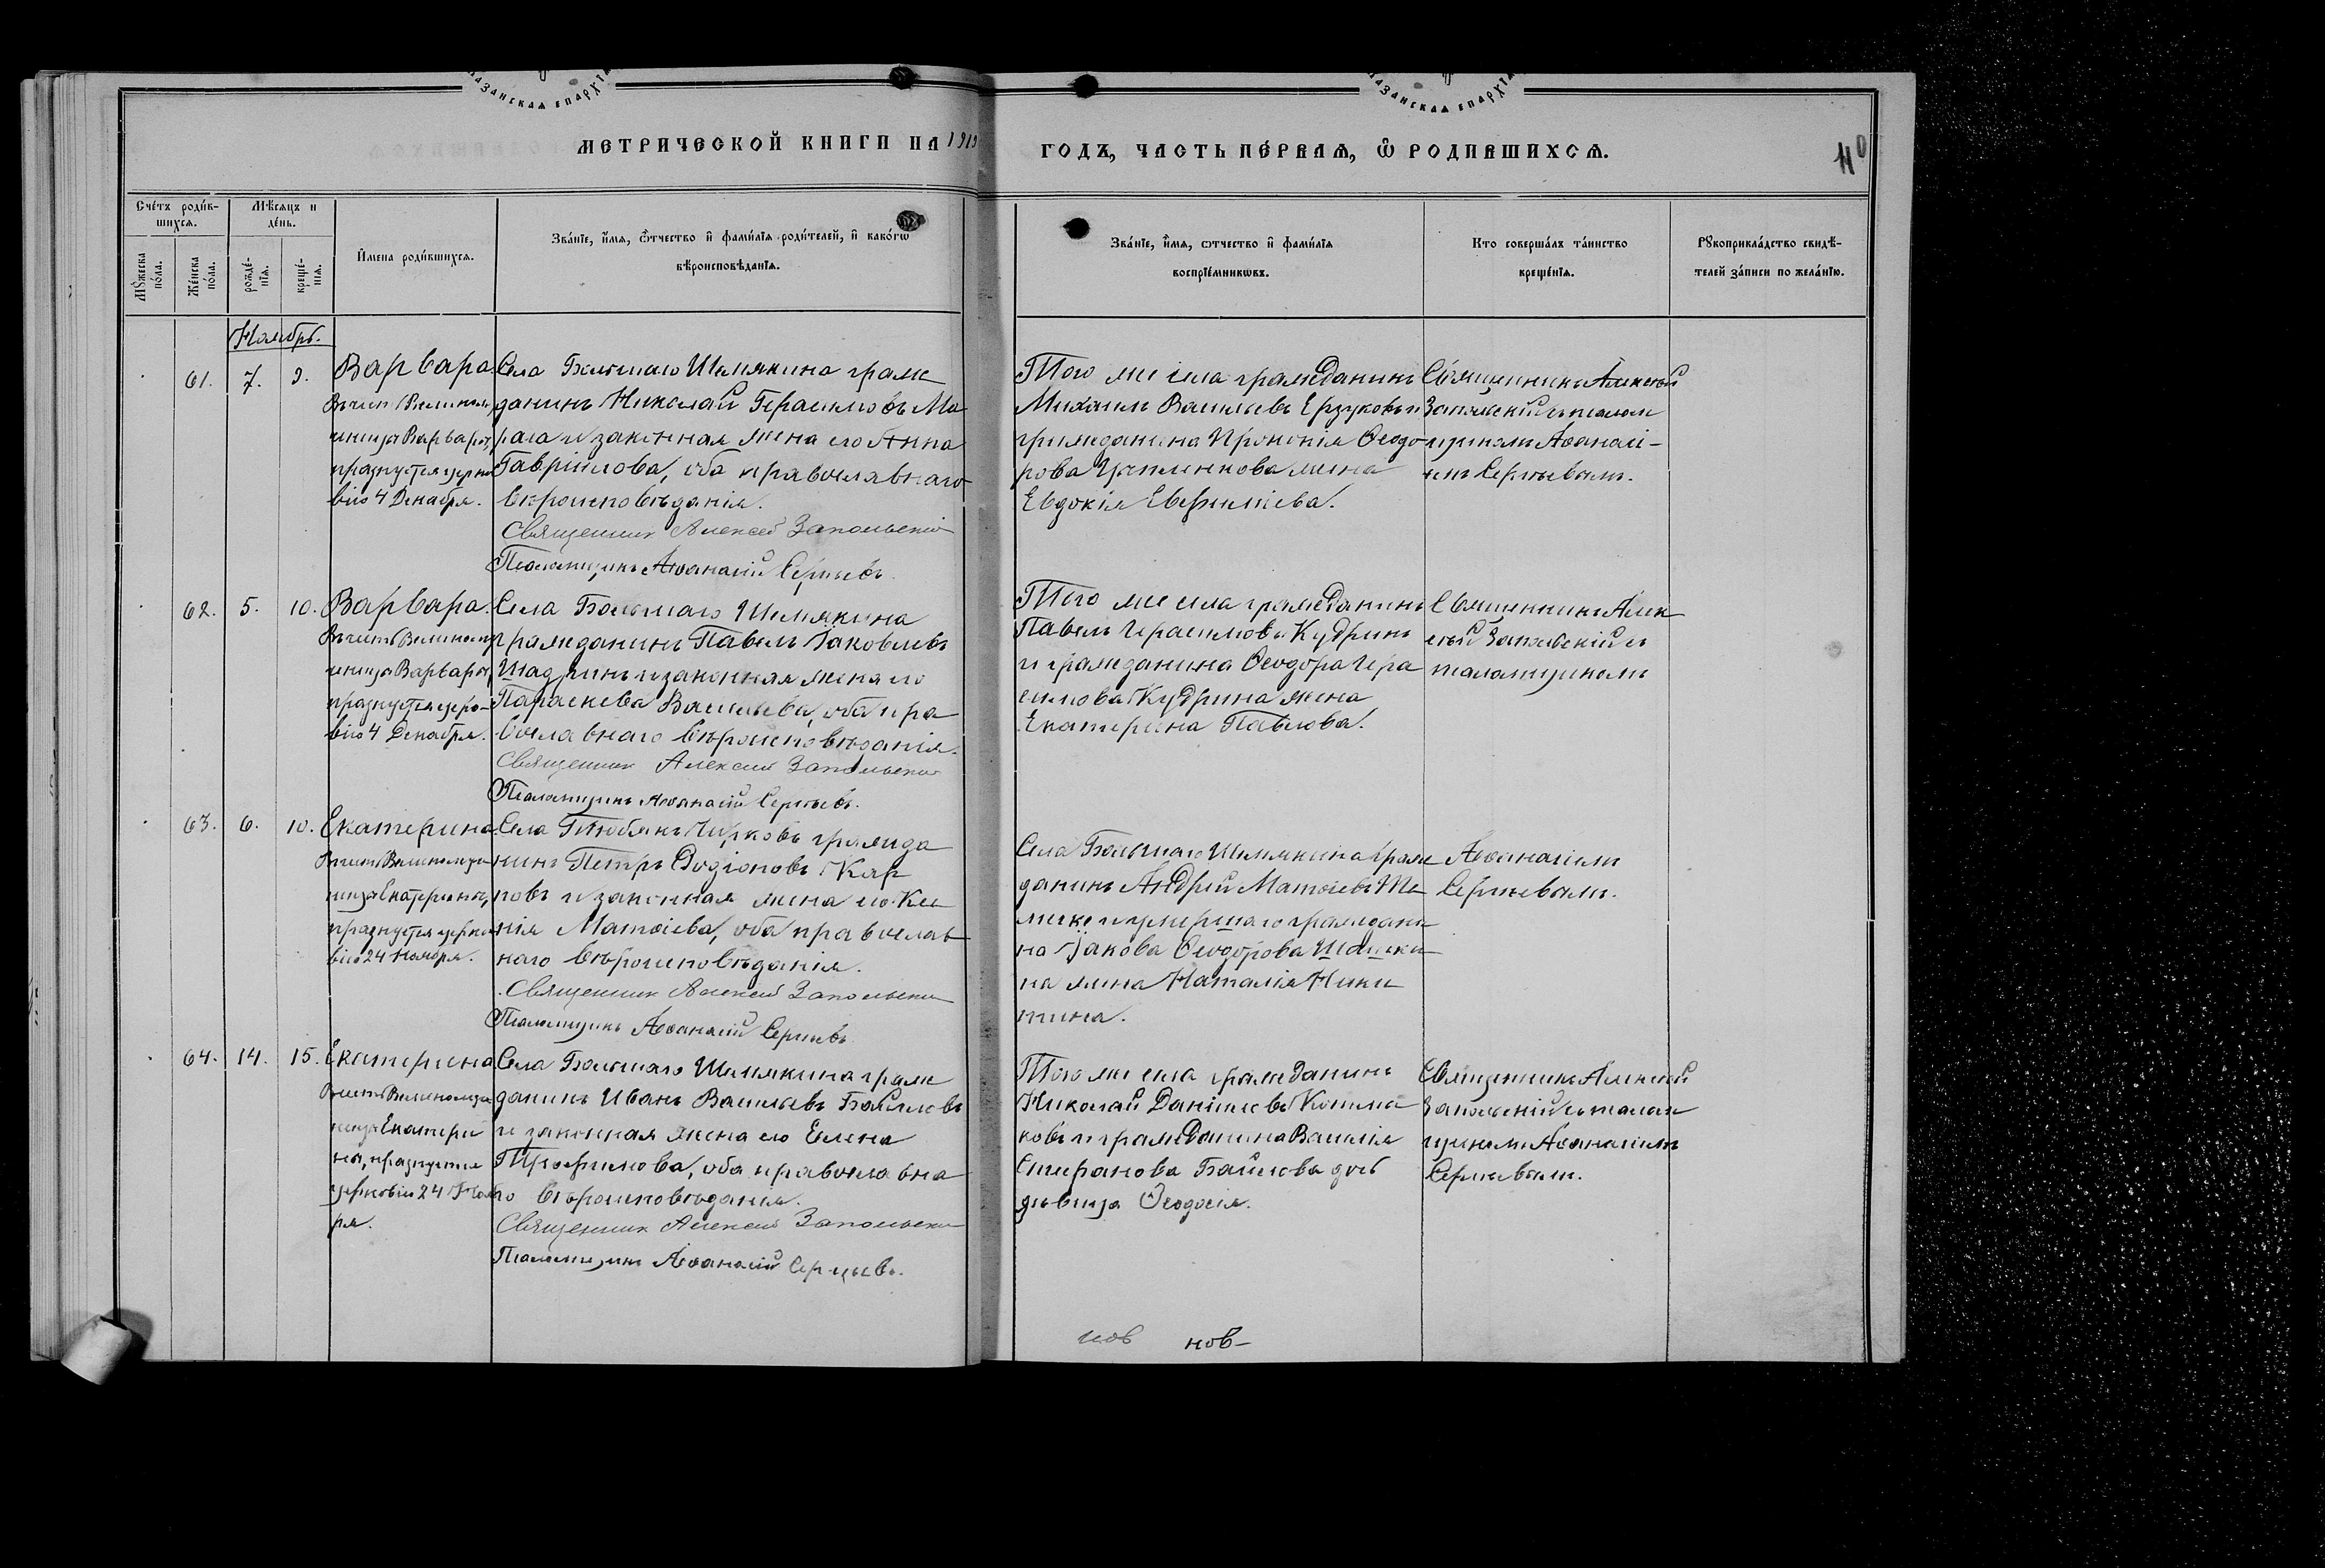 КАЗАНСКАЯ ЕПАРХІЯ
КАЗАНСКАЯ ЕПАРХІЯ
МЕТРИЧЕСКОЙ КНИГИ НА 1919
ГОДЪ, ЧАСТЬ ПЕ́РВАЯ, Ѡ҃ РОДИВШИХСЯ.
40
Сче́тъ роди́в-
шихся.
Мѣ́сяцъ и
де́нь.
Мꙋ́жеска
по́ла.
Же́нска
по́ла.
рожде́-
нїя.
креще́-
нїя.
И҆́мена роди́вшихся.
Зва́нїе, и҆́мя, ѻ҆́тчество и҆ фами́лїя роди́телей, и҆ како́гѡ
вѣроисповѣ́данїя.
Зва́нїе, и҆́мя, ѻтчество и҆ фами́лїя
воспрїе́мникѡвъ.
Кто соверша́лъ та́инство
креще́нїя.
Рꙋкоприкла́дство свидѣ́-
телей за́писи по жела́нїю.
Ноябрь.
61. 7. 9. Варвара.
Въ честь Великому
ченицы Варвары,
празнуется церко
вію 4 Декабря.
Села Большаго Шемякина граж
данинъ Николай Герасимовъ Ма
раса и законная жена его Анна
Гавріилова, оба православнаго
вѣроисповѣданія.
Священник Алексей Запольскій
Псаломщикъ Аѳанасій Сергѣевъ.
Того же села гражданинъ
Михаилъ Васильевъ Ерзуковъ и
гражданина Прокопія Ѳеодо
рова жена
Евдокія Евфиміева.
Священникъ Алексѣй
Запольскій съ псалом
щикомъ Аѳанасі-
емъ Сергѣевымъ.
62. 5. 10. Варвара.
Въ честь Великому
ченицы Варвары,
празнуется церко-
вію 4 Декабря.
Села Большаго Шемякина
гражданинъ Павелъ Іаковлевъ
Шадринъ и законная жена его
Параскева Васильева, оба пра
вославнаго вѣроисповѣданія.
Священник Алексей Запольскій
Псаломщикъ Аѳанасій Сергѣевъ.
Того же села гражданинъ
Павелъ Герасимовъ Кудринъ
и гражданина Ѳеодора Гера
симова Кудрина жена
Екатерина Павлова.
Священникъ Алек
сѣй Запольскій съ
псаломщикомъ
63. 6. 10. Екатерина.
Въ честь Великомуче
ницы Екатерины,
празнуется церко
вію 24 Ноября.
Села Тюбякъ Чирковъ гражда
нинъ Петръ Родіоновъ Кар
повъ и законная жена его Ксе
нія Матѳіева, оба православ
наго вѣроисповѣданія.
Священник Алексей Запольскій
Псаломщикъ Аѳанасій Сергѣевъ
Села Большаго Шемякина граж
данинъ Андрей Матѳіевъ
и умершаго граждани
на Іакова Ѳеодорова Шашки
на жена Наталія Ники
тина.
Аѳанасіемъ
Сергѣевымъ.
64. 14. 15. Екатерина
Въ честь Великомуче
ницы Екатери
ны, празнуется
церковію 24 Нояб
ря.
Села Большаго Шемякина граж
данинъ Иванъ Васильевъ Байловъ
и законная жена его Елена
Трофимова, оба православна
го вѣроисповѣданія.
Священник Алексей Запольскій
Псаломщикъ Аѳанасій Сергѣевъ.
Того же села гражданинъ
Николай Даніиловъ
ковъ и гражданина Василія
Стефанова Байлова дочь
дѣвица Ѳеодосія.
Священникъ Алексей
Запольскій съ псалом
щикомъ Аѳанасіемъ
Сергѣевымъ.
нов нов-